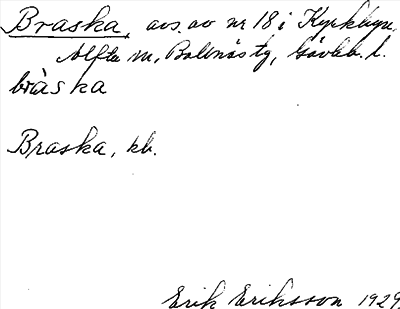 Braska, avs. av nr 18 i Kyrkbyn,
Alfta sn, Bollnäs tg, Gävleb. l.
bràska
Braska, kb.
Erik Eriksson 1929.